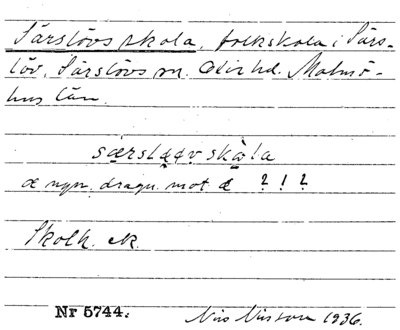 Särslövs skola, folkskola i Särs-
löv, Särslövs sn. Oxie hd. Malmö-
hus län.
særslöv skåla
æ nyn. dragn. mot ? ! ?
Skolk. ek.
Nr 5744. Nils Nilsson 1936.